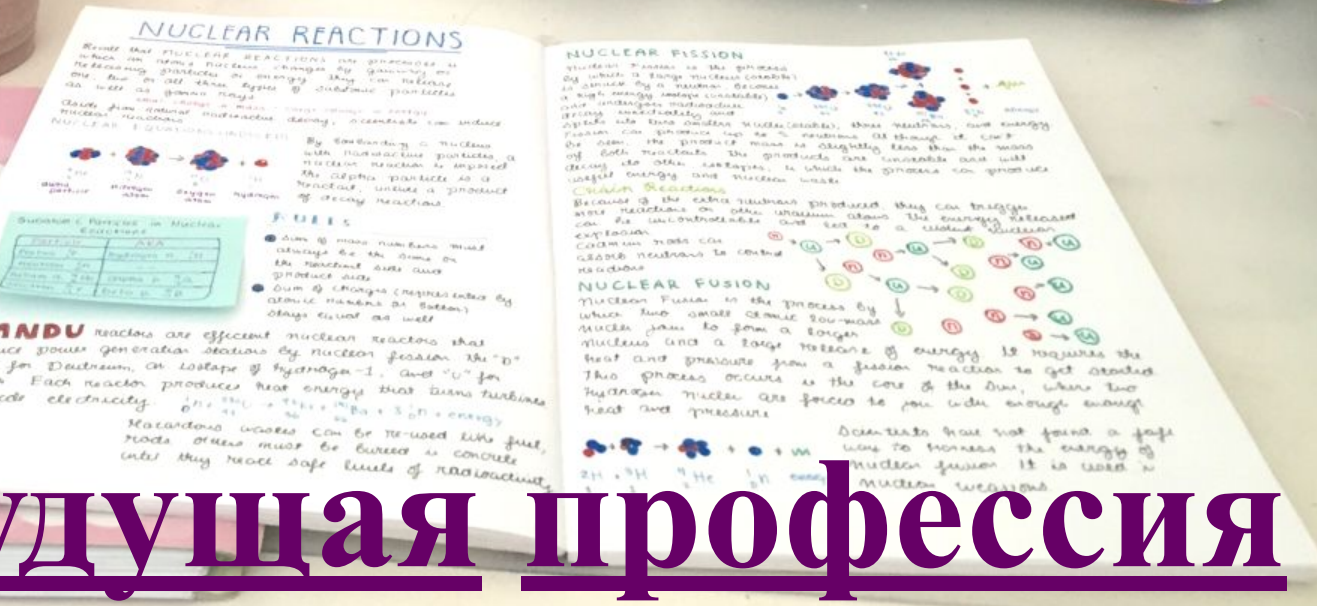 NUCLEAR REACTIONS
Recall that NUCLEAR REACTIONS are processes in
which an atoms nucleus changes by gaining or
releasing particles or energy. They can release
one, two or all three types of subatomic particles
as well as gamma rays
Aside from natural radioactive decay, scientists can induce
nuclear reactions
NUCLEAR EQUATIONS
By bombarding a nucleus
with radioactive particles, a
nuclear reaction is
the alpha particle is a
reactant, unlike a product
of decay reactions.
alpha particle
nitrogen atom
oxygen atom
hydrogen
Subatomic Particles in Nuclear
Reactions
Particle AKA
RULES
Sum of mass numbers must
always be the same on
the reactant side and
product side
Sum of charges (represented by
atomic numbers on bottom)
stays equal as well
ANDU reactors are efficient nuclear reactors that
power generation stations by nuclear fission the "D"
for Deuterium, an isotope of hydrogen-1, and "U" for
Each reactor produces heat energy that turns turbines
electricity.
+ energy
Hazardous wastes can be re-used like fuel,
rods others must be buried in concrete
until they reach safe levels of radioactivity
NUCLEAR FISSION
Nuclear Fission is the process
by which a large nucleus (stable)
is struck by a neutron, becomes
a high energy isotope (unstable)
and undergoes radioactive
decay immediately and
splits into two smaller nuclei (stable), three neutrons, and energy
Fission can produce up to 5 neutrons although it can't
be seen, the product mass is slightly less than the mass
of both reactants. The products are unstable and will
decay to other isotopes, in which the process can produce
useful energy and nuclear waste
Chain Reactions
Because of the extra neutrons produced, they can trigger
more reactions on other uranium atoms. The energy released
can be uncontrollable and led to a violent nuclear
explosion
Cadmium rods can
absorb neutrons to control
reactions
NUCLEAR FUSION
Nuclear Fusion is the process by
which two small atomic low-mass
nuclei join to form a larger
nucleus and a large release of energy. It requires the
heat and pressure from a fission reaction to get started
This process occurs in the core of the Sun, where two
hydrogen nuclei are forced to join with enough enough
heat and pressure
²H + ³H ⁴He ¹n energy
Scientists have not found a safe
way to harness the energy of
nuclear fusion It is used in
nuclear weapons
удущая профессия